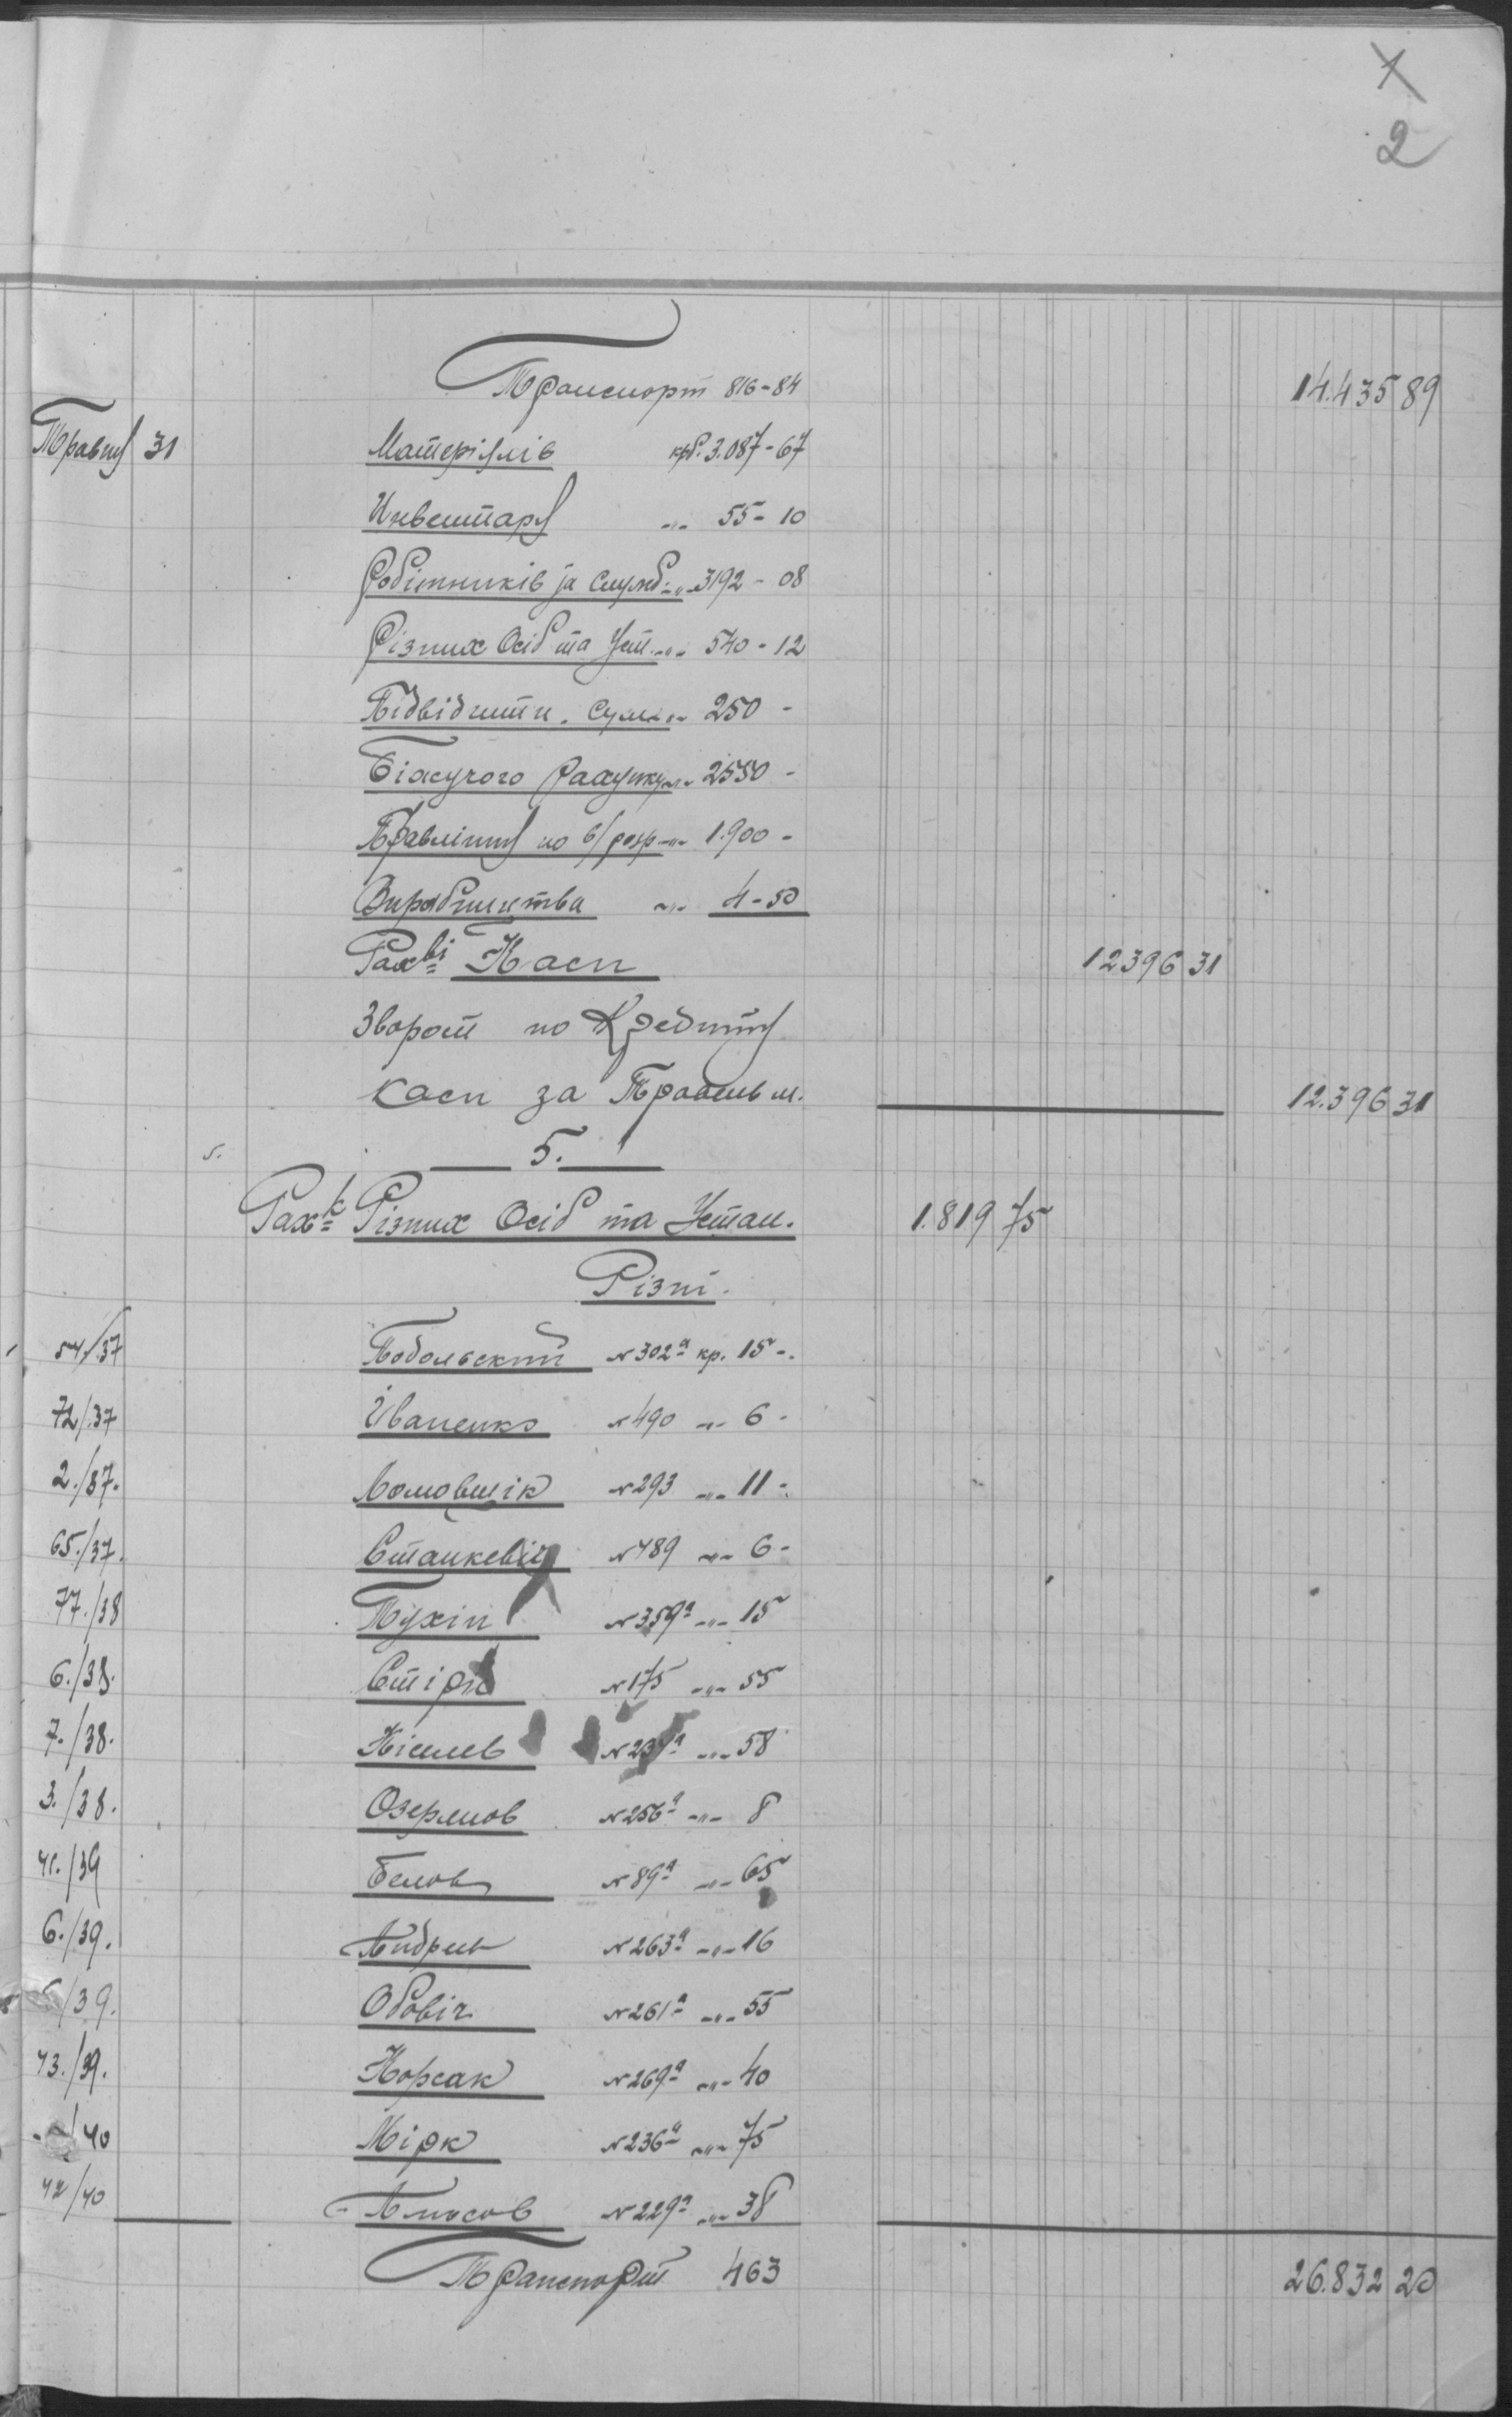 1
2
Транспорт 816-84 14.435 89
Травня 31 Матеріялів крб. 3.087-67
Инвентаря -"- 55-10
Робітників та служб. -"- 3192-08
Різних Осіб та Уст. -"- 540-12
Підвідчитн. Сум -"- 250-
Біжучого Рахунку -"- 2550-
Правління по в/розр -"- 1.900-
Виробництва -"- 4-50
Рах-ві Каси 12396 31
Зворот по Кредиту
каси за Травень м. 12.396 31
5. 5.
Рах-к Різних Осіб та Устан. 1.819 75
Різні.
54./37 Подольский №302а кр. 15-.
72/37 Іваненко №490 -"- 6-
2./37. Ломовшік №293 -"- 11-
65./37. Станкевіч №489 -"- 6-
77./38 Пухін №359а -"- 15
6./38. №175 -"- 55
7./38. Кісилев -"- 58
3./38. №256а -"- 8
41./39 Белов №89а -"- 65
6./39. Андреев №263а -"- 16
/39. Обовіч №261а -"- 55
43./39. Корсак №269а -"- 40
/40 Мірк №236а -"- 75
42/40 Власов №229а -"- 38
Транспорт 463 26.832 20